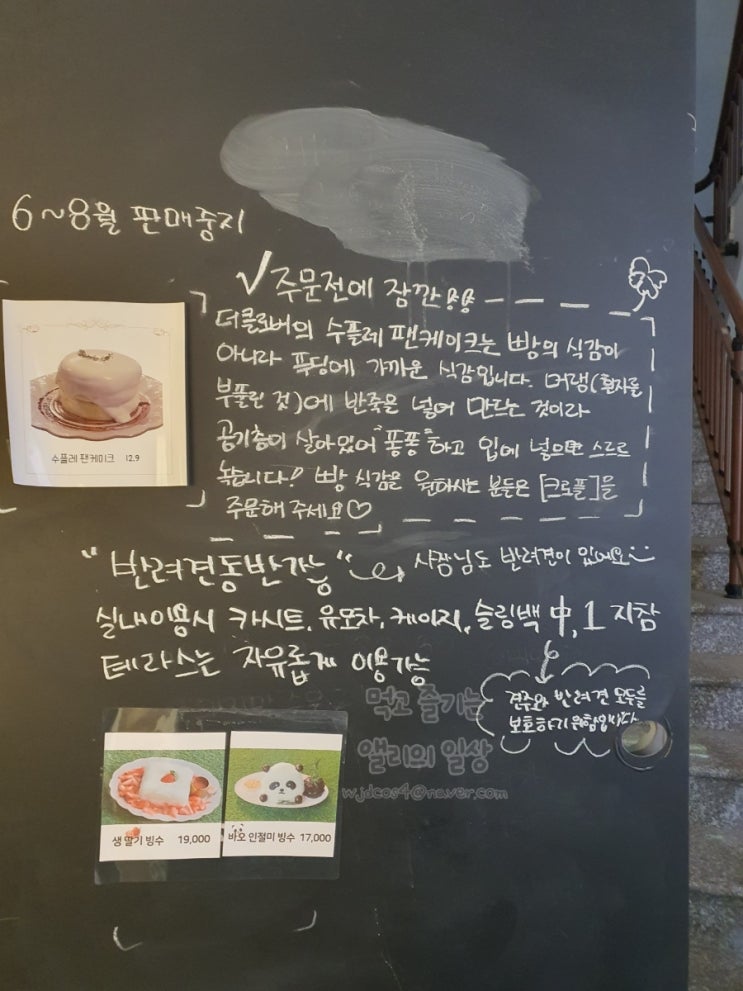 6~8월 판매중지
√주문전에 잠깐!!
더클로버의 수플레 팬케이크는 빵의 식감이
아니라 푸딩에 가까운 식감입니다. 머랭(흰자를
부풀린 것)에 반죽을 넣어 만드는 것이라
공기층이 살아있어 "퐁퐁"하고 입에 넣으면 스르르
녹습니다! 빵 식감을 원하시는 분들은 [크로플]을
주문해 주세요♡
수플레 팬케이크 12.9
"반려견동반가능" 사장님도 반려견이 있어요
실내이용시 카시트, 유모차, 케이지, 슬링백 中, 1 지참
테라스는 자유롭게 이용가능
견주와 반려견 모두를
보호하기 위함입니다
먹고 즐기는
앨리의 일상
wjdcos4@naver.com
생 딸기 빙수 19,000
바오 인절미 빙수 17,000